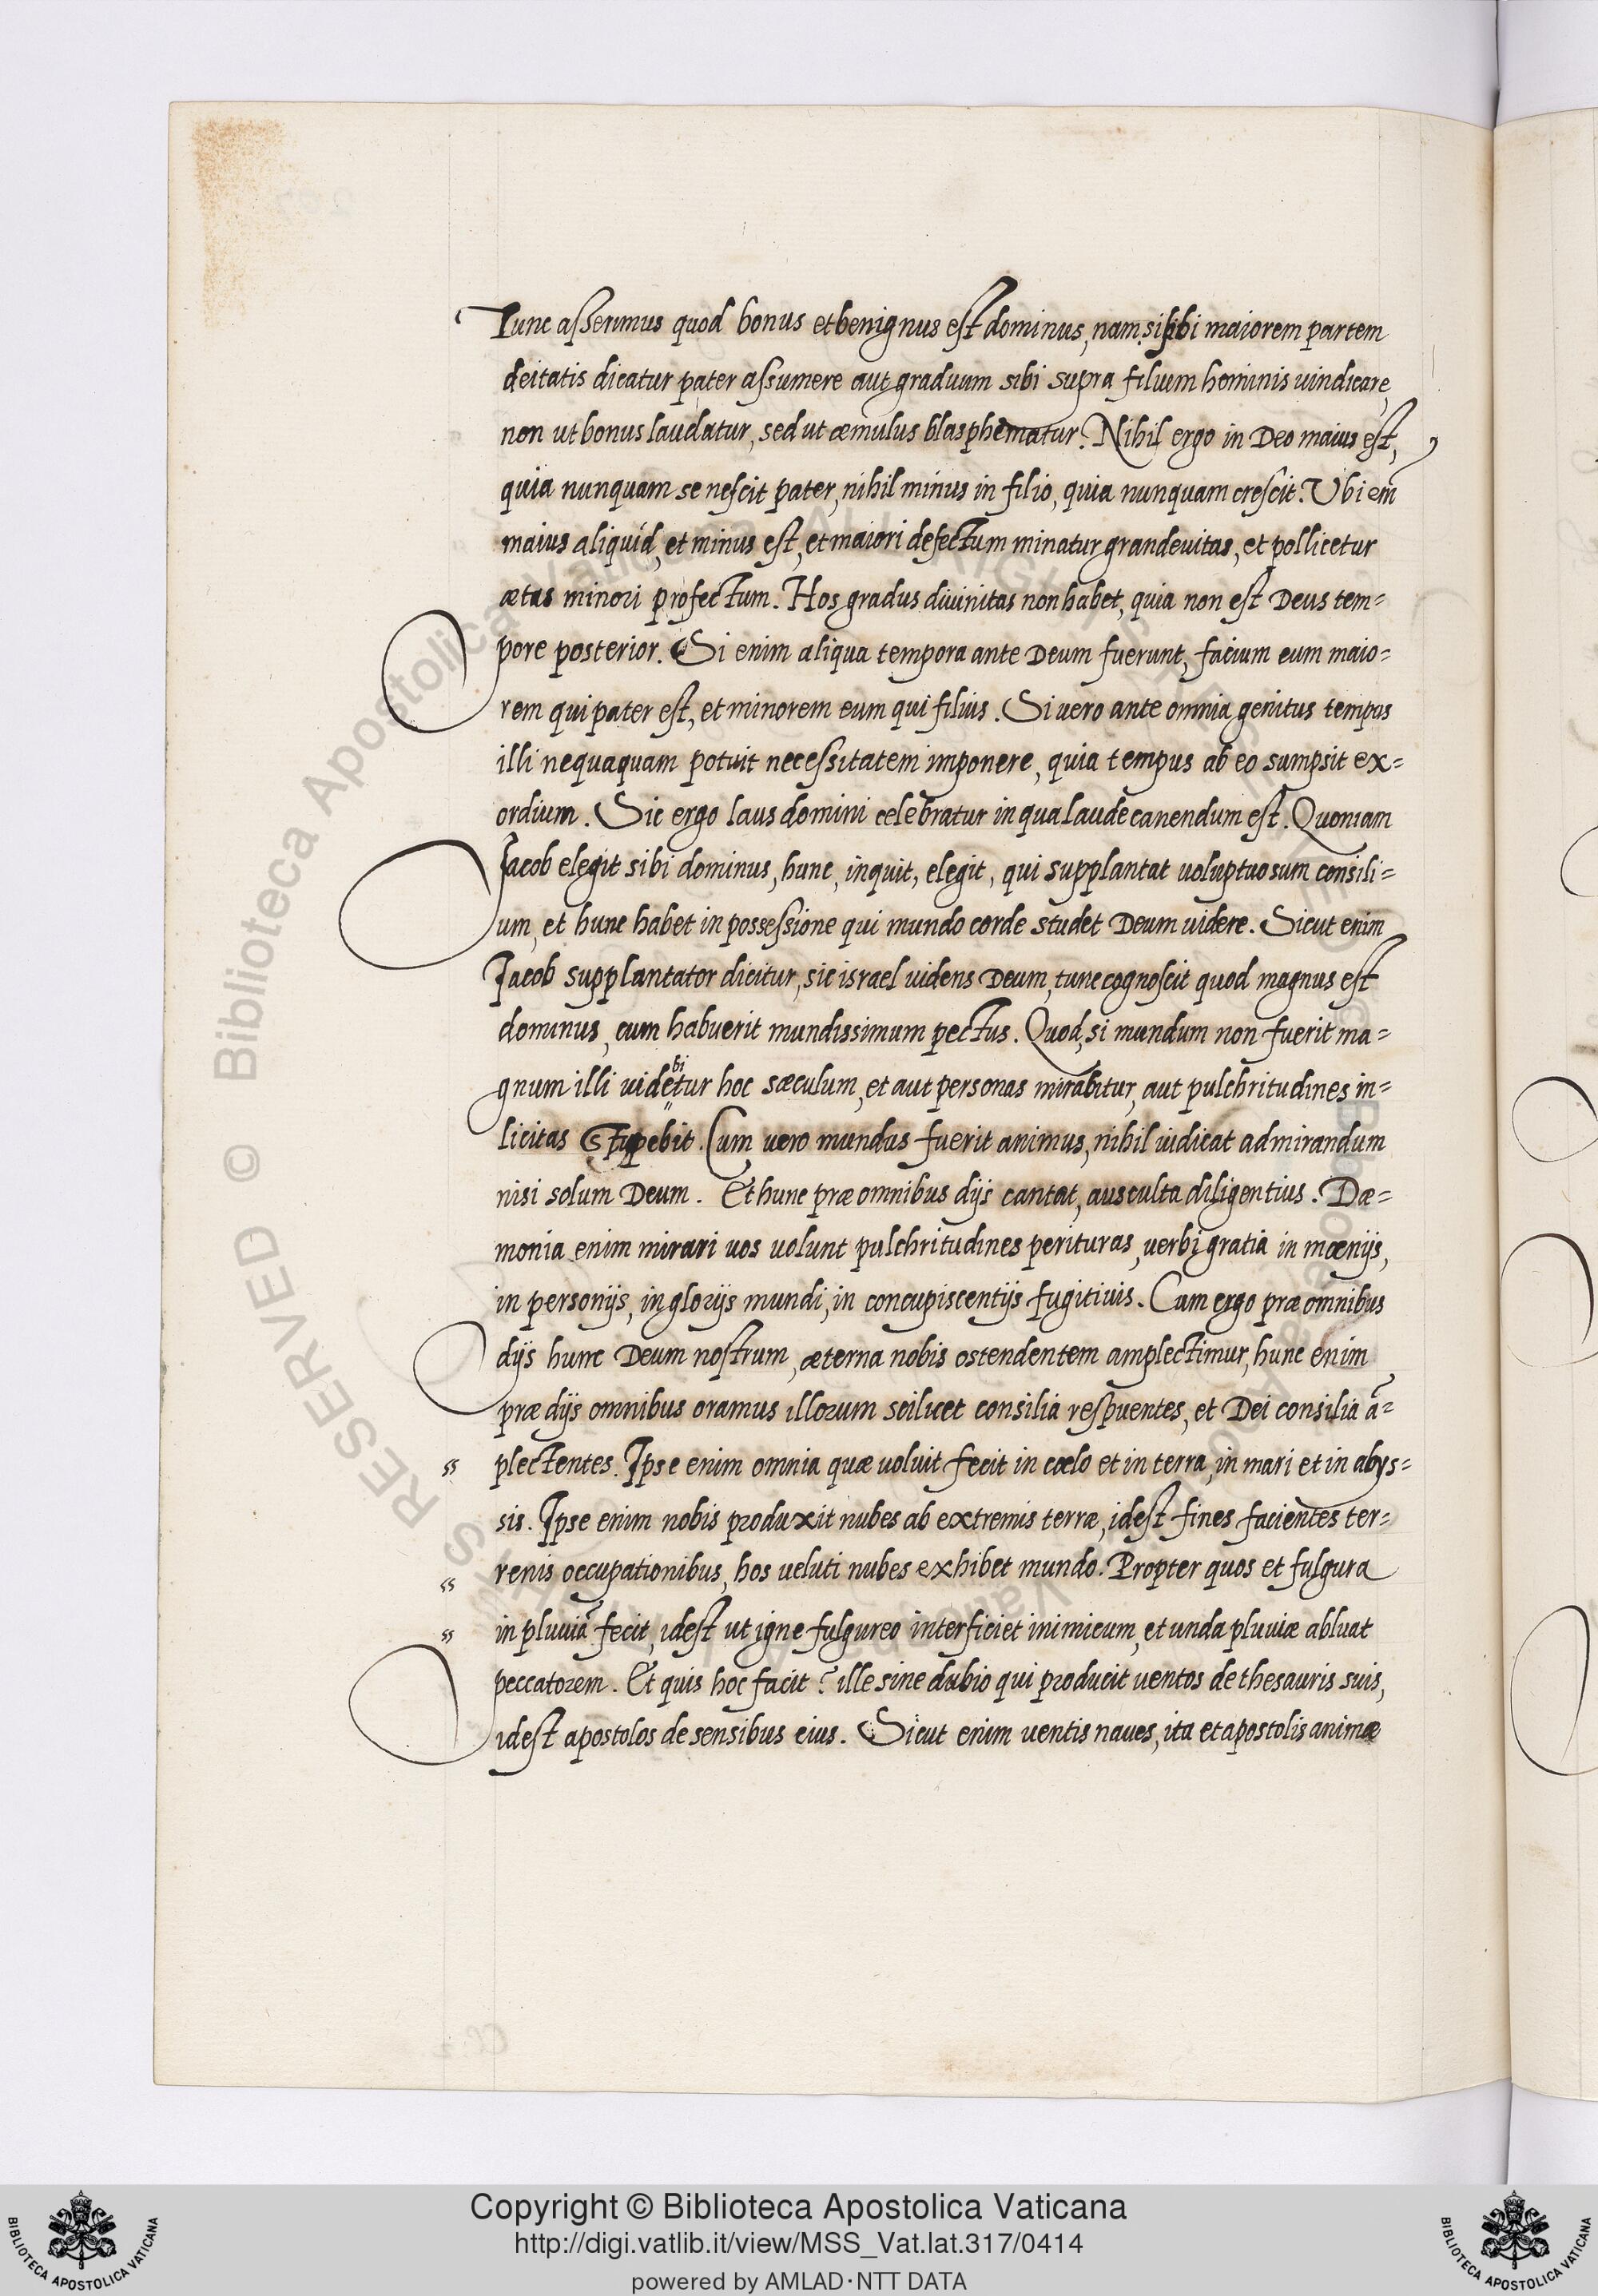 Tunc asserimus quod bonus et benignus est dominus, nam si sibi maiorem partem
deitatis dicatur pater assumere aut graduum sibi supra filium hominis uindicare,
non ut bonus laudatur, sed ut æmulus blasphematur. Nihil ergo in Deo maius est,
quia nunquam senescit pater, nihil minus in filio, quia nunquam crescit. Vbi em̃
maius aliquid, et minus est, et maiori defectum minatur grandeuitas, et pollicetur
ætas minori profectum. Hos gradus diuinitas non habet, quia non est Deus tem=
pore posterior. Si enim aliqua tempora ante Deum fuerunt, facium eum maio=
rem qui pater est, et minorem eum qui filius. Si uero ante omnia genitus tempus
illi nequaquam potuit necessitatem imponere, quia tempus ab eo sumpsit ex=
ordium. Sic ergo laus domini celebratur in qua laude canendum est. Quoniam
Jacob elegit sibi dominus, hunc, inquit, elegit, qui supplantat uoluptuosum consili=
um, et hunc habet in possessione qui mundo corde studet Deum uidere. Sicut enim
Jacob supplantator dicitur, sic israel uidens Deum, tunc cognoscit quod magnus est
dominus, cum habuerit mundissimum pectus. Quod, si mundum non fuerit ma=
gnum illi uidebitur hoc sæculum, et aut personas mirabitur, aut pulchritudines in=
licitas stupebit. Cum uero mundus fuerit animus, nihil iudicat admirandum
nisi solum Deum. Et hunc præ omnibus dijs cantat, ausculta diligentius. Dæ=
monia enim mirari uos uolunt pulchritudines perituras, uerbi gratia in mœnijs,
in personijs, in glorijs mundi, in concupiscentijs fugitiuis. Cum ergo præ omnibus
dijs hunc Deum nostrum, æterna nobis ostendentem amplectimur, hunc enim
præ dijs omnibus oramus illorum scilicet consilia respuentes, et Dei consilia ã=
plectentes. Ipse enim omnia quæ uoluit fecit in cœlo et in terra, in mari et in abys=
sis. Ipse enim nobis produxit nubes ab extremis terræ, idest fines facientes ter=
renis occupationibus, hos ueluti nubes exhibet mundo. Propter quos et fulgura
in pluuiã fecit, idest ut igne fulgureo interficiet inimicum, et unda pluuiæ abluat
peccatorem. Et quis hoc facit? ille sine dubio qui producit uentos de thesauris suis,
idest apostolos de sensibus eius. Sicut enim uentis naues, ita et apostolis animæ
Copyright © Biblioteca Apostolica Vaticana
http://digi.vatlib.it/view/MSS_Vat.lat.317/0414
powered by AMLAD·NTT DATA
BIBLIOTECA APOSTOLICA VATICANA
BIBLIOTECA APOSTOLICA VATICANA